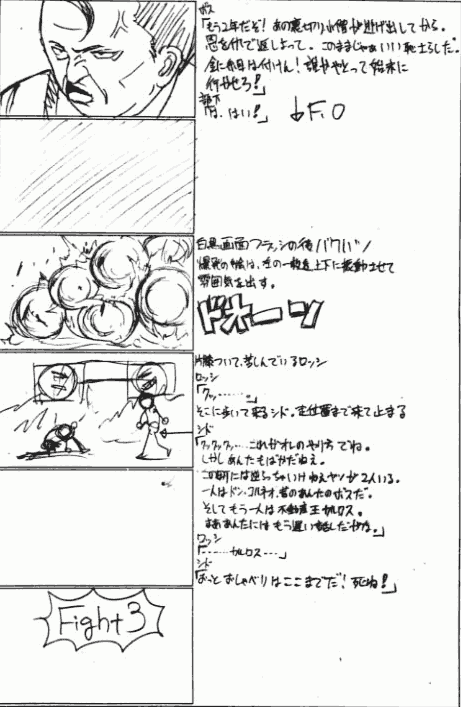 ボス
「もう2年だぞ！あの裏切り小僧が逃げ出してから。
恩を仇で返しよって。このままじゃあいい恥さらしだ。
金に糸目は付けん！誰かやとって始末に
行かせろ！」
部下
「は、はい！」
↓F.O
白黒画面フラッシュの後バクハツ
爆発の絵は、左の一枚を上下に振動させて
雰囲気を出す。
ドオーーン
片膝ついて、苦しんでいるロッシ
ロッシ
「クッ………。」
そこに歩いて来るシド。定位置まで来て止まる
シド
「クックックッ…これがオレのやり方でね。
しかしあんたもばかだねえ。
この町には逆らっちゃいけねえヤツが2人いる。
一人はドン・コルネオ、昔のあんたのボスだ。
そしてもう一人は不動産王カルロス。
まああんたにはもう遅い話しだがな。」
ロッシ
「………カルロス…」
シド
「おっとおしゃべりはここまでだ！死ね！」
Fight3